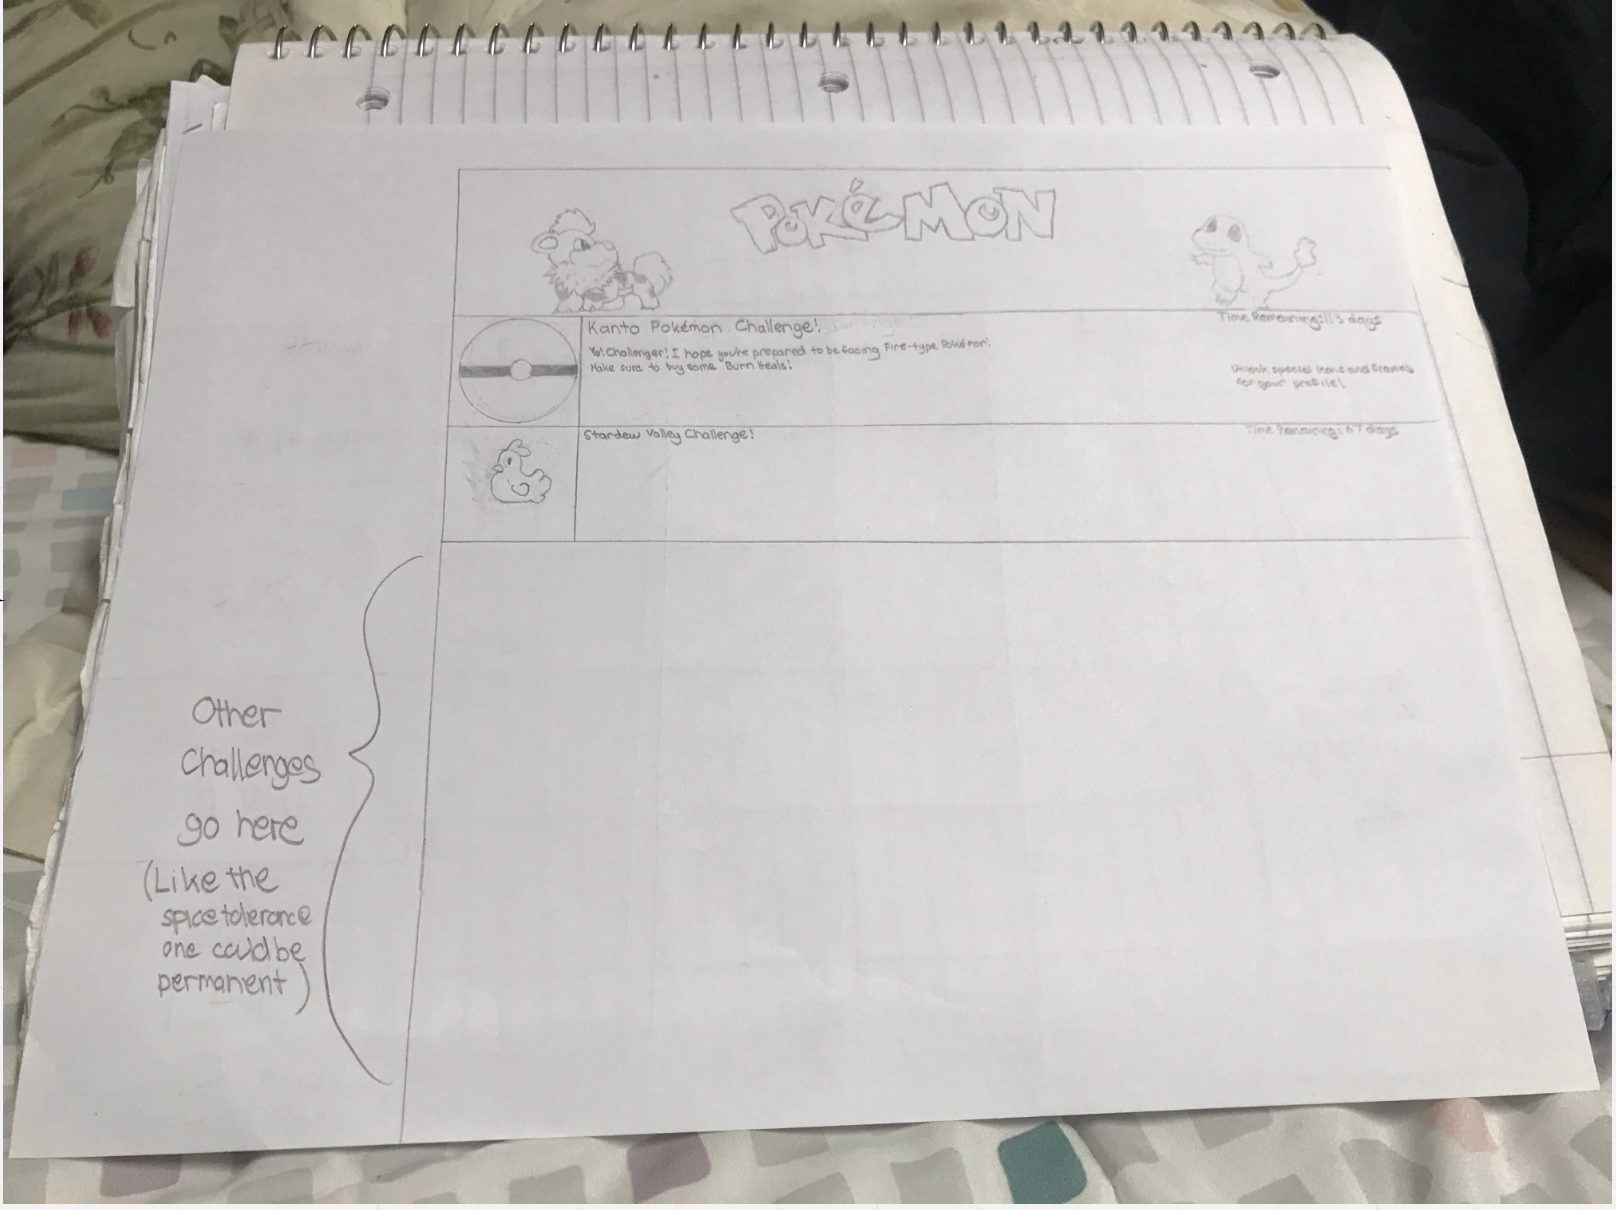 POKéMON
Kanto Pokémon Challenge!
Time Remaining: 113 days
Yo! Challenger! I hope you're prepared to be facing Fire-type Pokémon!
Make sure to buy some Burn Heals!
Unlock special items and frames
for your profile!
Stardew Valley Challenge!
Time Remaining: 67 days
Other
Challenges
go here
(Like the
spice tolerance
one could be
permanent)